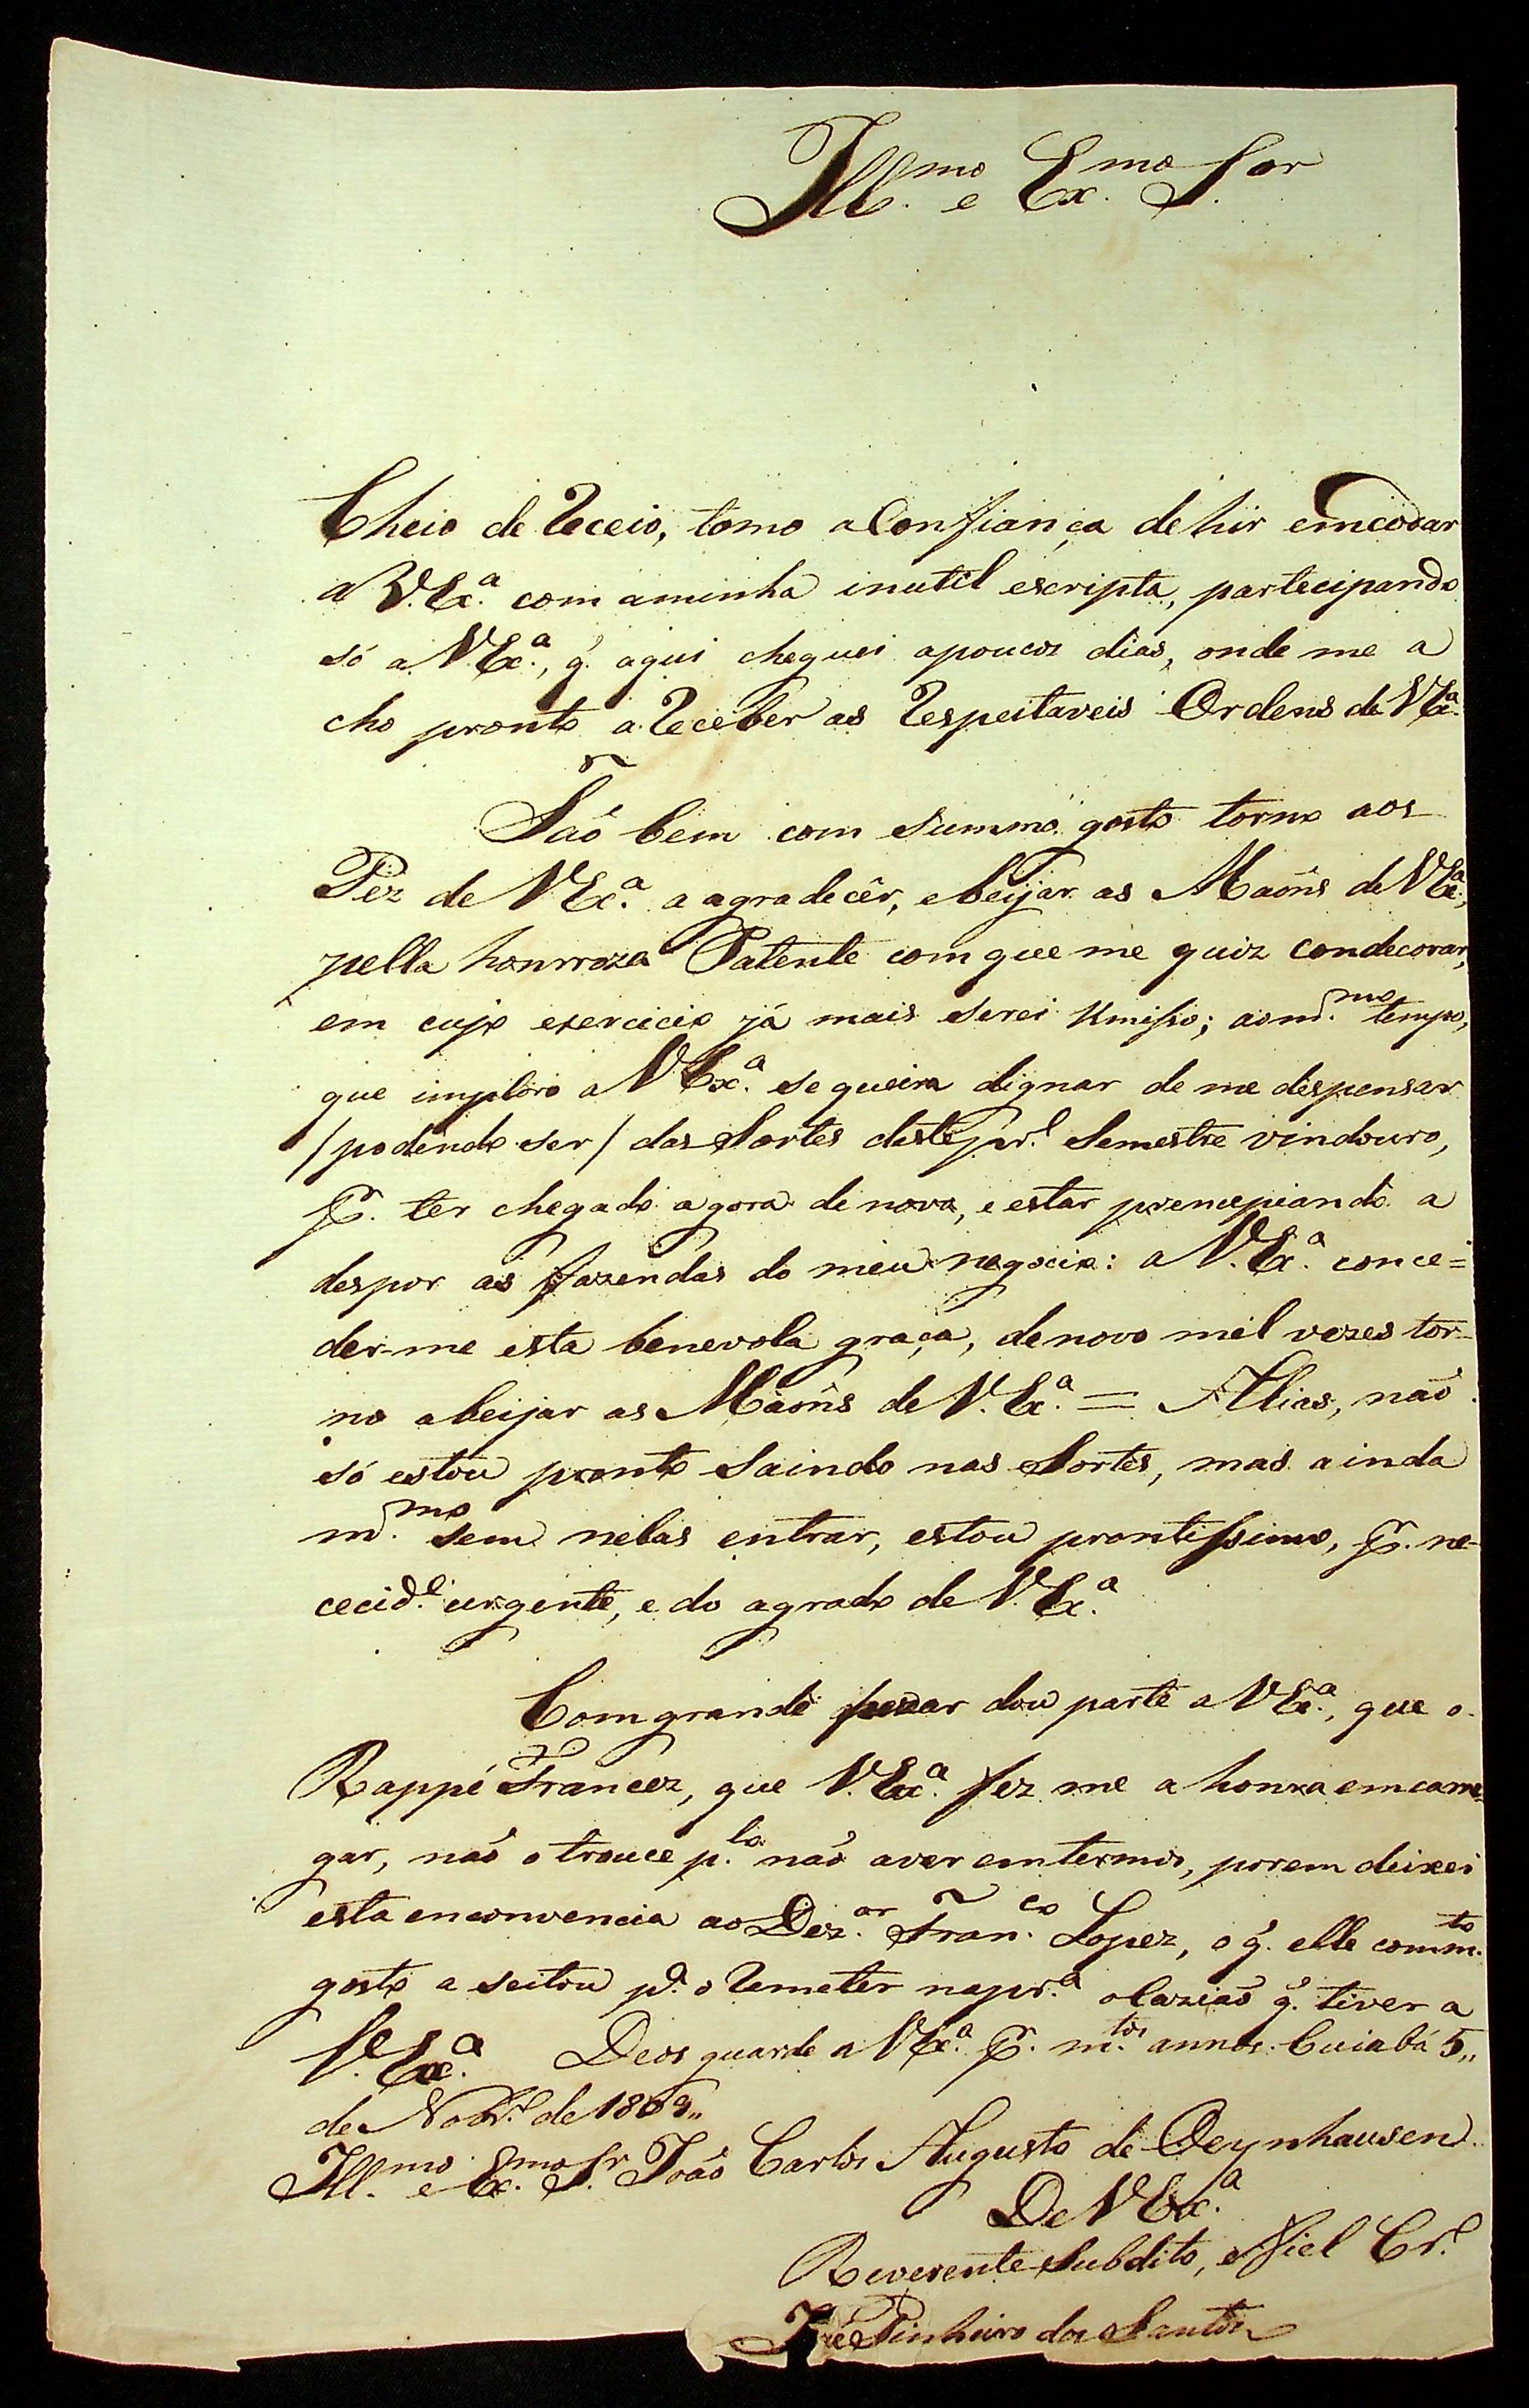 Ill.mo e Ex.mo S.or
Cheio de receio, tomo a Confiança de hir emcodar
a V. Ex.a com aminha inutil escripta, partecipando
só a V. Ex.a, q̃. aqui cheguei apoucos dias, onde me a
cho pronto a receber as respeitaveis Ordens de V Ex.a
Taõ bem com summo gosto torno aos
Pez de V Ex.a a agradecêr, e beijar as Maoñs de V Ex.a,
pella honrroza Patente com que me quiz condecorar,
em cujo exercicio já mais serei Umisso; ao m.mo tempo,
que imploro a V Ex.a se queira dignar de me despensar
/podendo ser/ das Sortes deste pr.o Semestre vindouro,
P. ter chegado agora de novo, e estar prencipiando a
despor as fazendas do meu negocio: a V. Ex.a conce=
der-me esta benevola graça, denovo mil vezes tor-
no abeijar as Maoñs de V. Ex.a = Alias, naõ
só estou pronto Saindo nas Sortes, mas ainda
m.mo sem nelas entrar, estou prontissimo, P. ne-
cecid.e urgente, e do agrado de V. Ex.a
Com grande pezar dou parte a V Ex.a, que o
Rappé Francez, que V. Ex.a fez me a honra emcarre-
gar, naõ o trouce p.lo naõ aver em termos, porem deixei
esta enconvencia ao Dez.or Fran.co Lopez, o q̃. elle com m.to
gosto a seitou p.a o remeter na pr.a oCaziaõ q̃. tiver a
V. Ex.a Deos guarde a V Ex.a P. m.tos annos. Cuiabá 5,,
de Nobr.o de 1809,,
Ill.mo e Ex.mo S.r Joaõ Carlos Augusto de Oeynhausen
De V Ex.a
Reverente Subdito, e Fiel Cr.o
José Pinheiro dos Santos